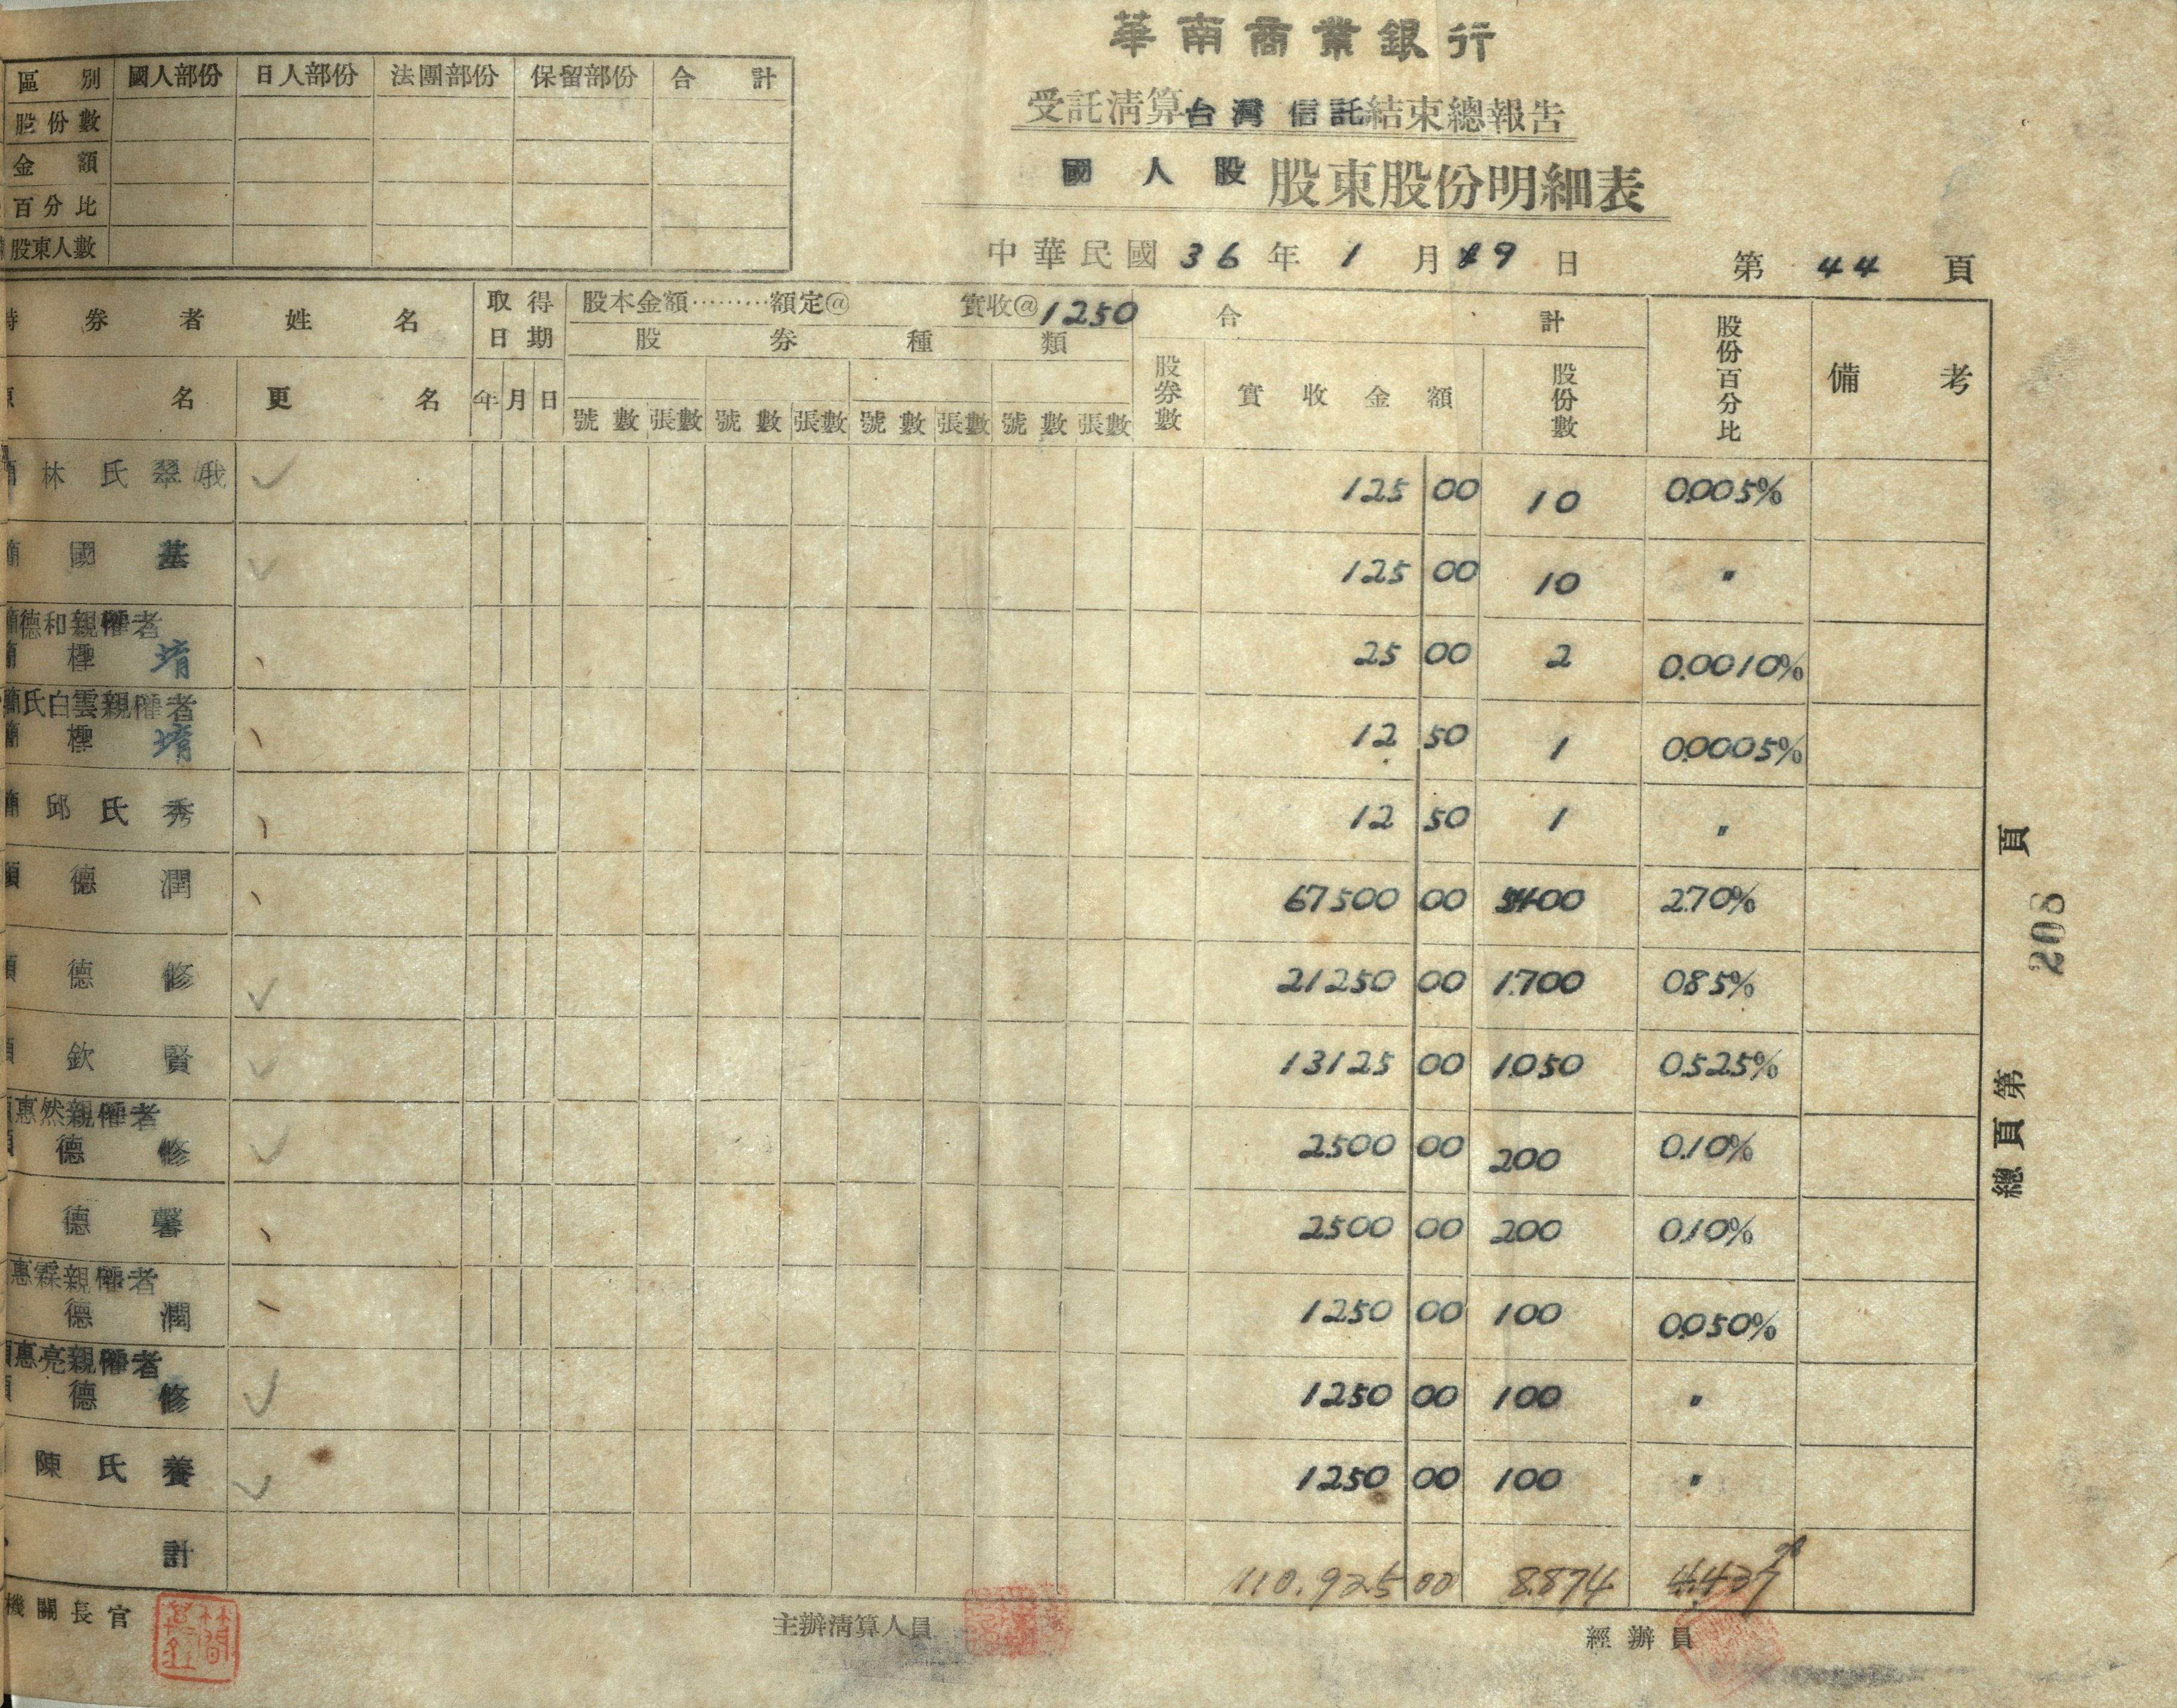 華南商業銀行
受託清算台灣信託結束總報告
國人股 股東股份明細表
中華民國 36 年 1 月 29 日 第 44 頁
區別 國人部份 日人部份 法團部份 保留部份 合計
股份數
金額
百分比
股東人數
券者姓名 取得日期 股本金額………額定@ 實收@1250 合計 股份百分比 備考
股券種類
名 更名 年 月 日 號數 張數 號數 張數 號數 張數 號數 張數 股券數 實收金額 股份數
簡林氏翠峨 125 00 10 0.005%
簡國基 125 00 10 〃
簡德和親權者
簡檉堉 25 00 2 0.0010%
簡氏白雲親權者
簡檉堉 12 50 1 0.0005%
簡邱氏秀 12 50 1 〃
顏德潤 67500 00 5400 2.70%
顏德修 21250 00 1.700 0.85%
顏欽賢 13125 00 1.050 0.525%
惠然親權者
顏德修 2500 00 200 0.10%
德馨 2500 00 200 0.10%
惠霖親權者
德潤 1250 00 100 0.050%
顏惠亮親權者
顏德修 1250 00 100 〃
陳氏養 1250 00 100 〃
計 110.925 00 8.874 4.437%
機關長官 主辦清算人員 經辦員
總頁第 208 頁